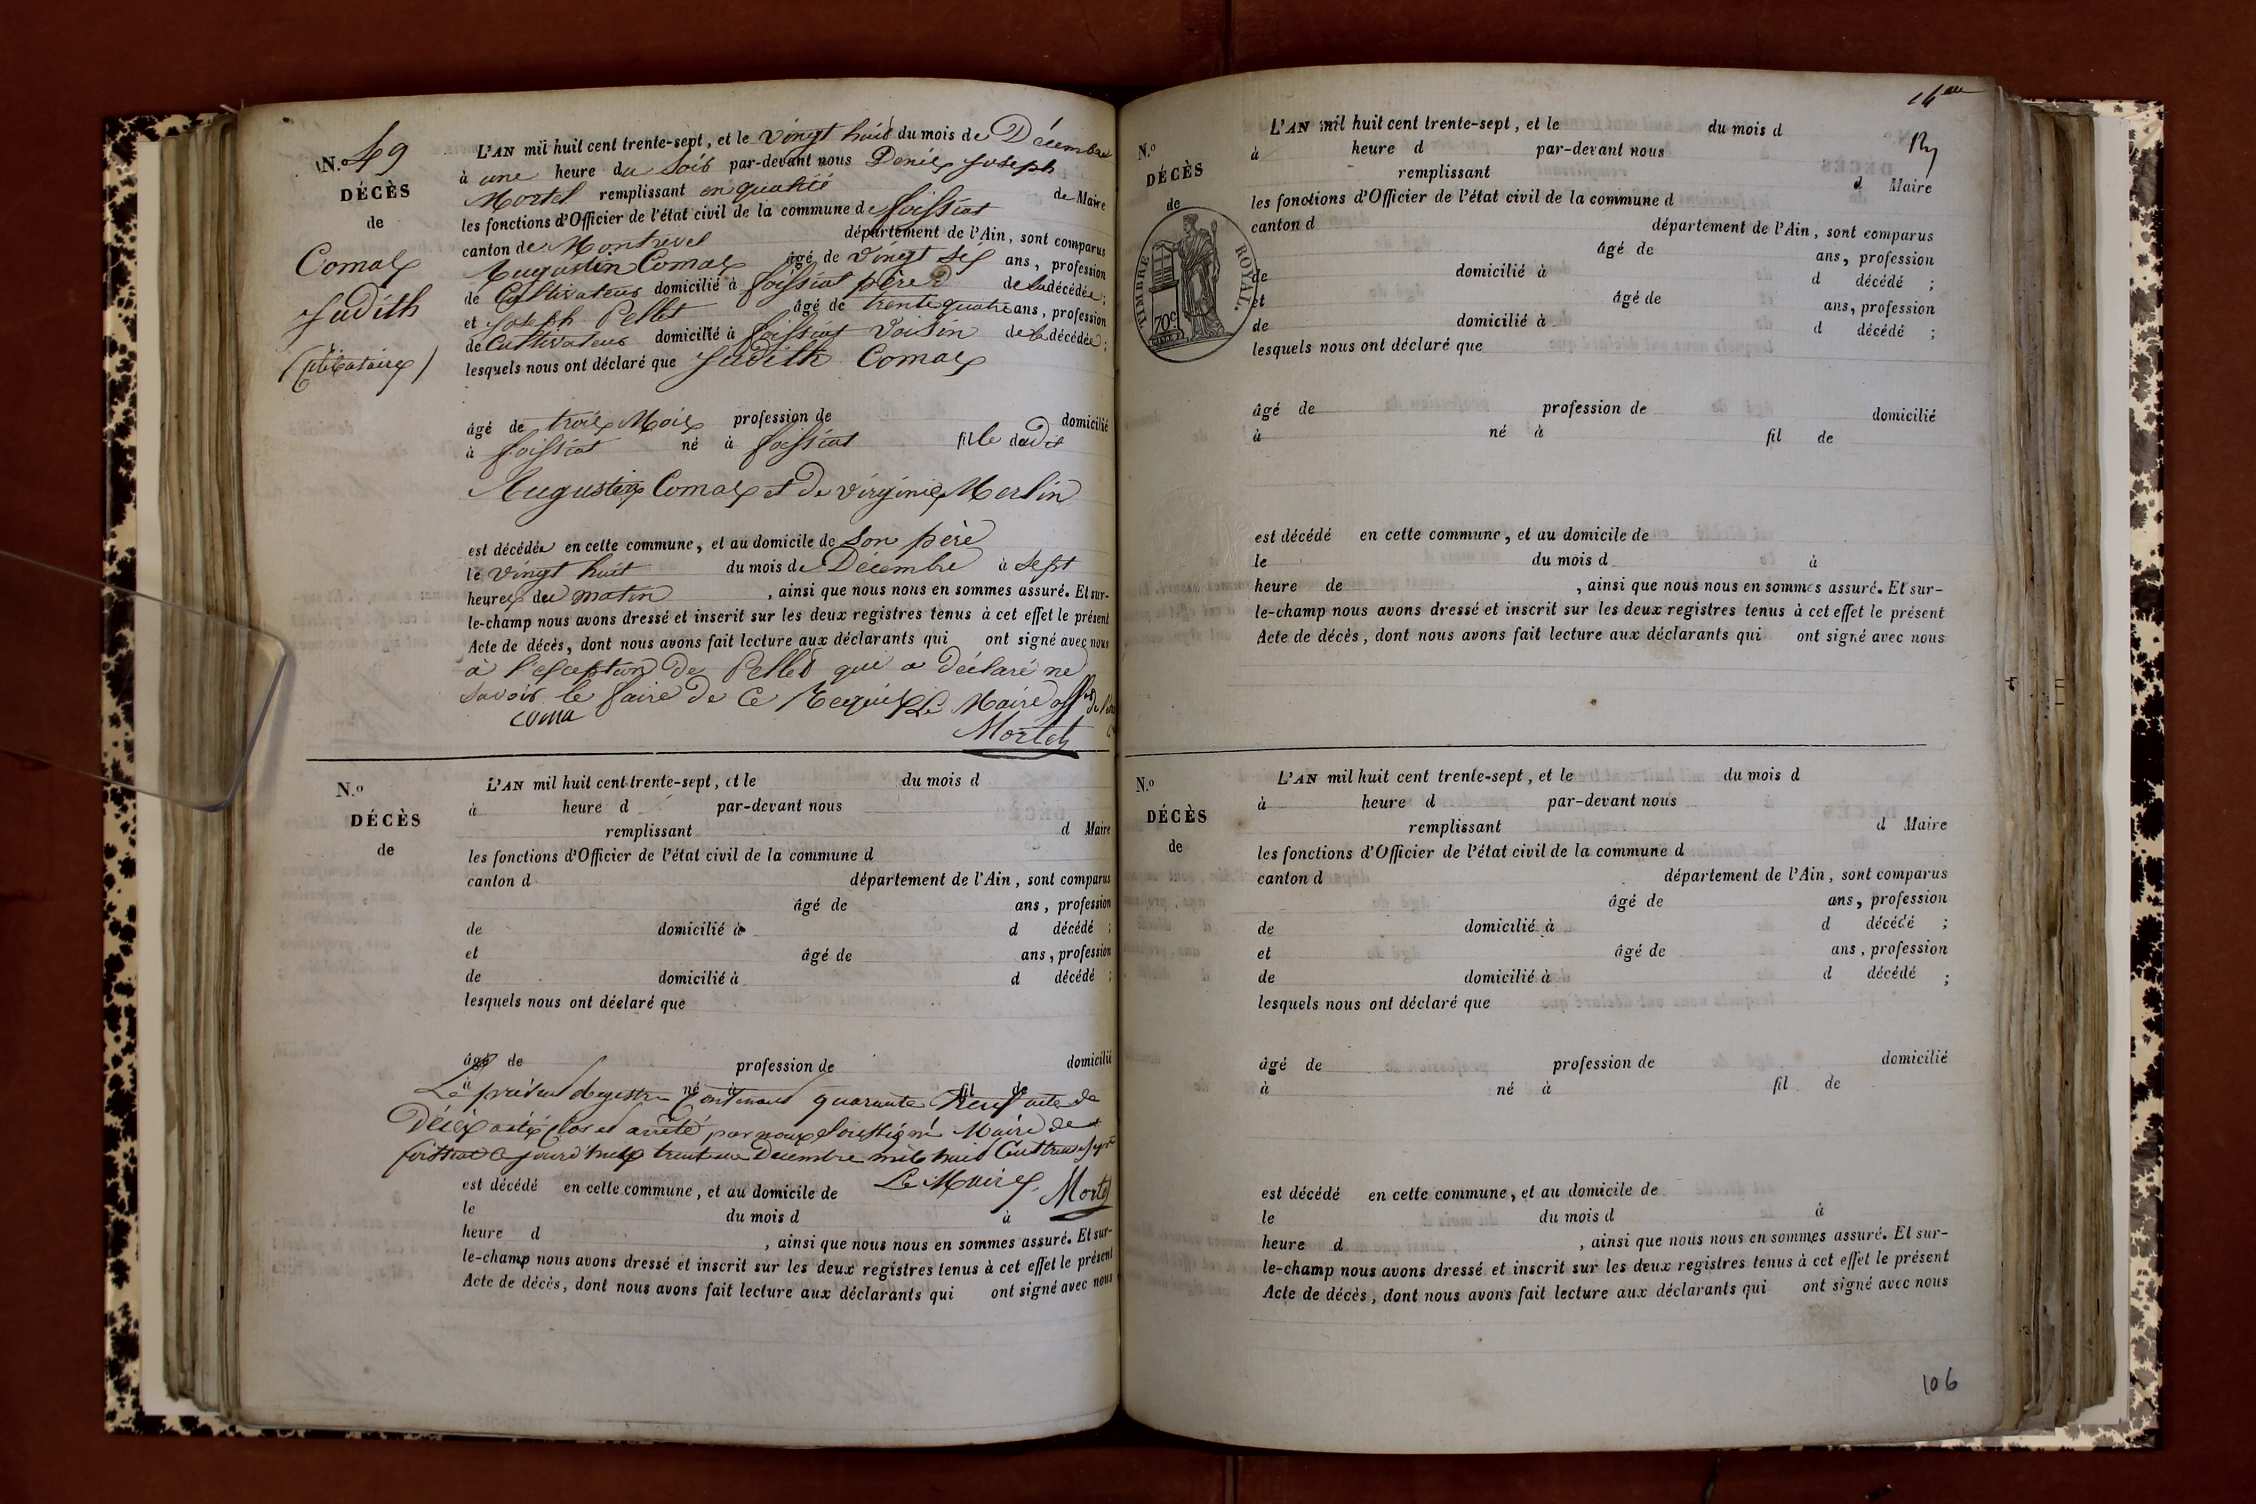 N.º 49
DÉCÈS
de
Comas
Judith
(Célibataire)
L'AN mil huit cent trente-sept, et le vingt huit du mois de Décembre
à une heure du soir par-devant nous Denis Joseph
Mortel remplissant en qualité de Maire
les fonctions d'Officier de l'état civil de la commune de foissiat
canton de Montrevel département de l'Ain, sont comparus
Augustin Comas âgé de vingt six ans, profession
de Cultivateur domicilié à foissiat père de la décédée;
et Joseph Pellet âgé de trente quatre ans, profession
de Cultivateur domicilié à foissiat voisin de la décédée;
lesquels nous ont déclaré que Judith Comas
âgé de trois Mois profession de domicilié
à foissiat né à foissiat fille dudit
Augustin Comas et de virginie Merlin
est décédée en cette commune, et au domicile de son père
le vingt huit du mois de Décembre à sept
heures du matin, ainsi que nous nous en sommes assuré. Et sur-
le-champ nous avons dressé et inscrit sur les deux registres tenus à cet effet le présent
Acte de décès, dont nous avons fait lecture aux déclarants qui ont signé avec nous
à l'exception de Pellet qui a déclaré ne
savoir le faire de ce Requis Le Maire off
coma
Mortel
N.º
DÉCÈS
de
L'AN mil huit cent trente-sept, et le du mois d
à heure d par-devant nous
remplissant d Maire
les fonctions d'Officier de l'état civil de la commune d
canton d département de l'Ain, sont comparus
âgé de ans, profession
de domicilié à d décédé ;
et âgé de ans, profession
de domicilié à d décédé ;
lesquels nous ont déclaré que
âgé de profession de domicilié
à né à fil de
Le présent Registre Contenant quarante Neuf acte de
Décès a été Clos et arrêté par nous soussigné Maire de
foissiat Ce jourd'hui trente un Décembre mil huit Cent trente sept
Le Maire
Mortel
est décédé en cette commune, et au domicile de
le du mois d à
heure d , ainsi que nous nous en sommes assuré. Et sur-
le-champ nous avons dressé et inscrit sur les deux registres tenus à cet effet le présent
Acte de décès, dont nous avons fait lecture aux déclarants qui ont signé avec nous
N.º
DÉCÈS
de
TIMBRE ROYAL.
70c
L'AN mil huit cent trente-sept, et le du mois d
à heure d par-devant nous
remplissant d Maire
les fonctions d'Officier de l'état civil de la commune d
canton d département de l'Ain, sont comparus
âgé de ans, profession
de domicilié à d décédé ;
et âgé de ans, profession
de domicilié à d décédé ;
lesquels nous ont déclaré que
âgé de profession de domicilié
à né à fil de
est décédé en cette commune, et au domicile de
le du mois d à
heure de , ainsi que nous nous en sommes assuré. Et sur-
le-champ nous avons dressé et inscrit sur les deux registres tenus à cet effet le présent
Acte de décès, dont nous avons fait lecture aux déclarants qui ont signé avec nous
N.º
DÉCÈS
de
L'AN mil huit cent trente-sept, et le du mois d
à heure d par-devant nous
remplissant d Maire
les fonctions d'Officier de l'état civil de la commune d
canton d département de l'Ain, sont comparus
âgé de ans, profession
de domicilié à d décédé ;
et âgé de ans, profession
de domicilié à d décédé ;
lesquels nous ont déclaré que
âgé de profession de domicilié
à né à fil de
est décédé en cette commune, et au domicile de
le du mois d à
heure d , ainsi que nous nous en sommes assuré. Et sur-
le-champ nous avons dressé et inscrit sur les deux registres tenus à cet effet le présent
Acte de décès, dont nous avons fait lecture aux déclarants qui ont signé avec nous
106